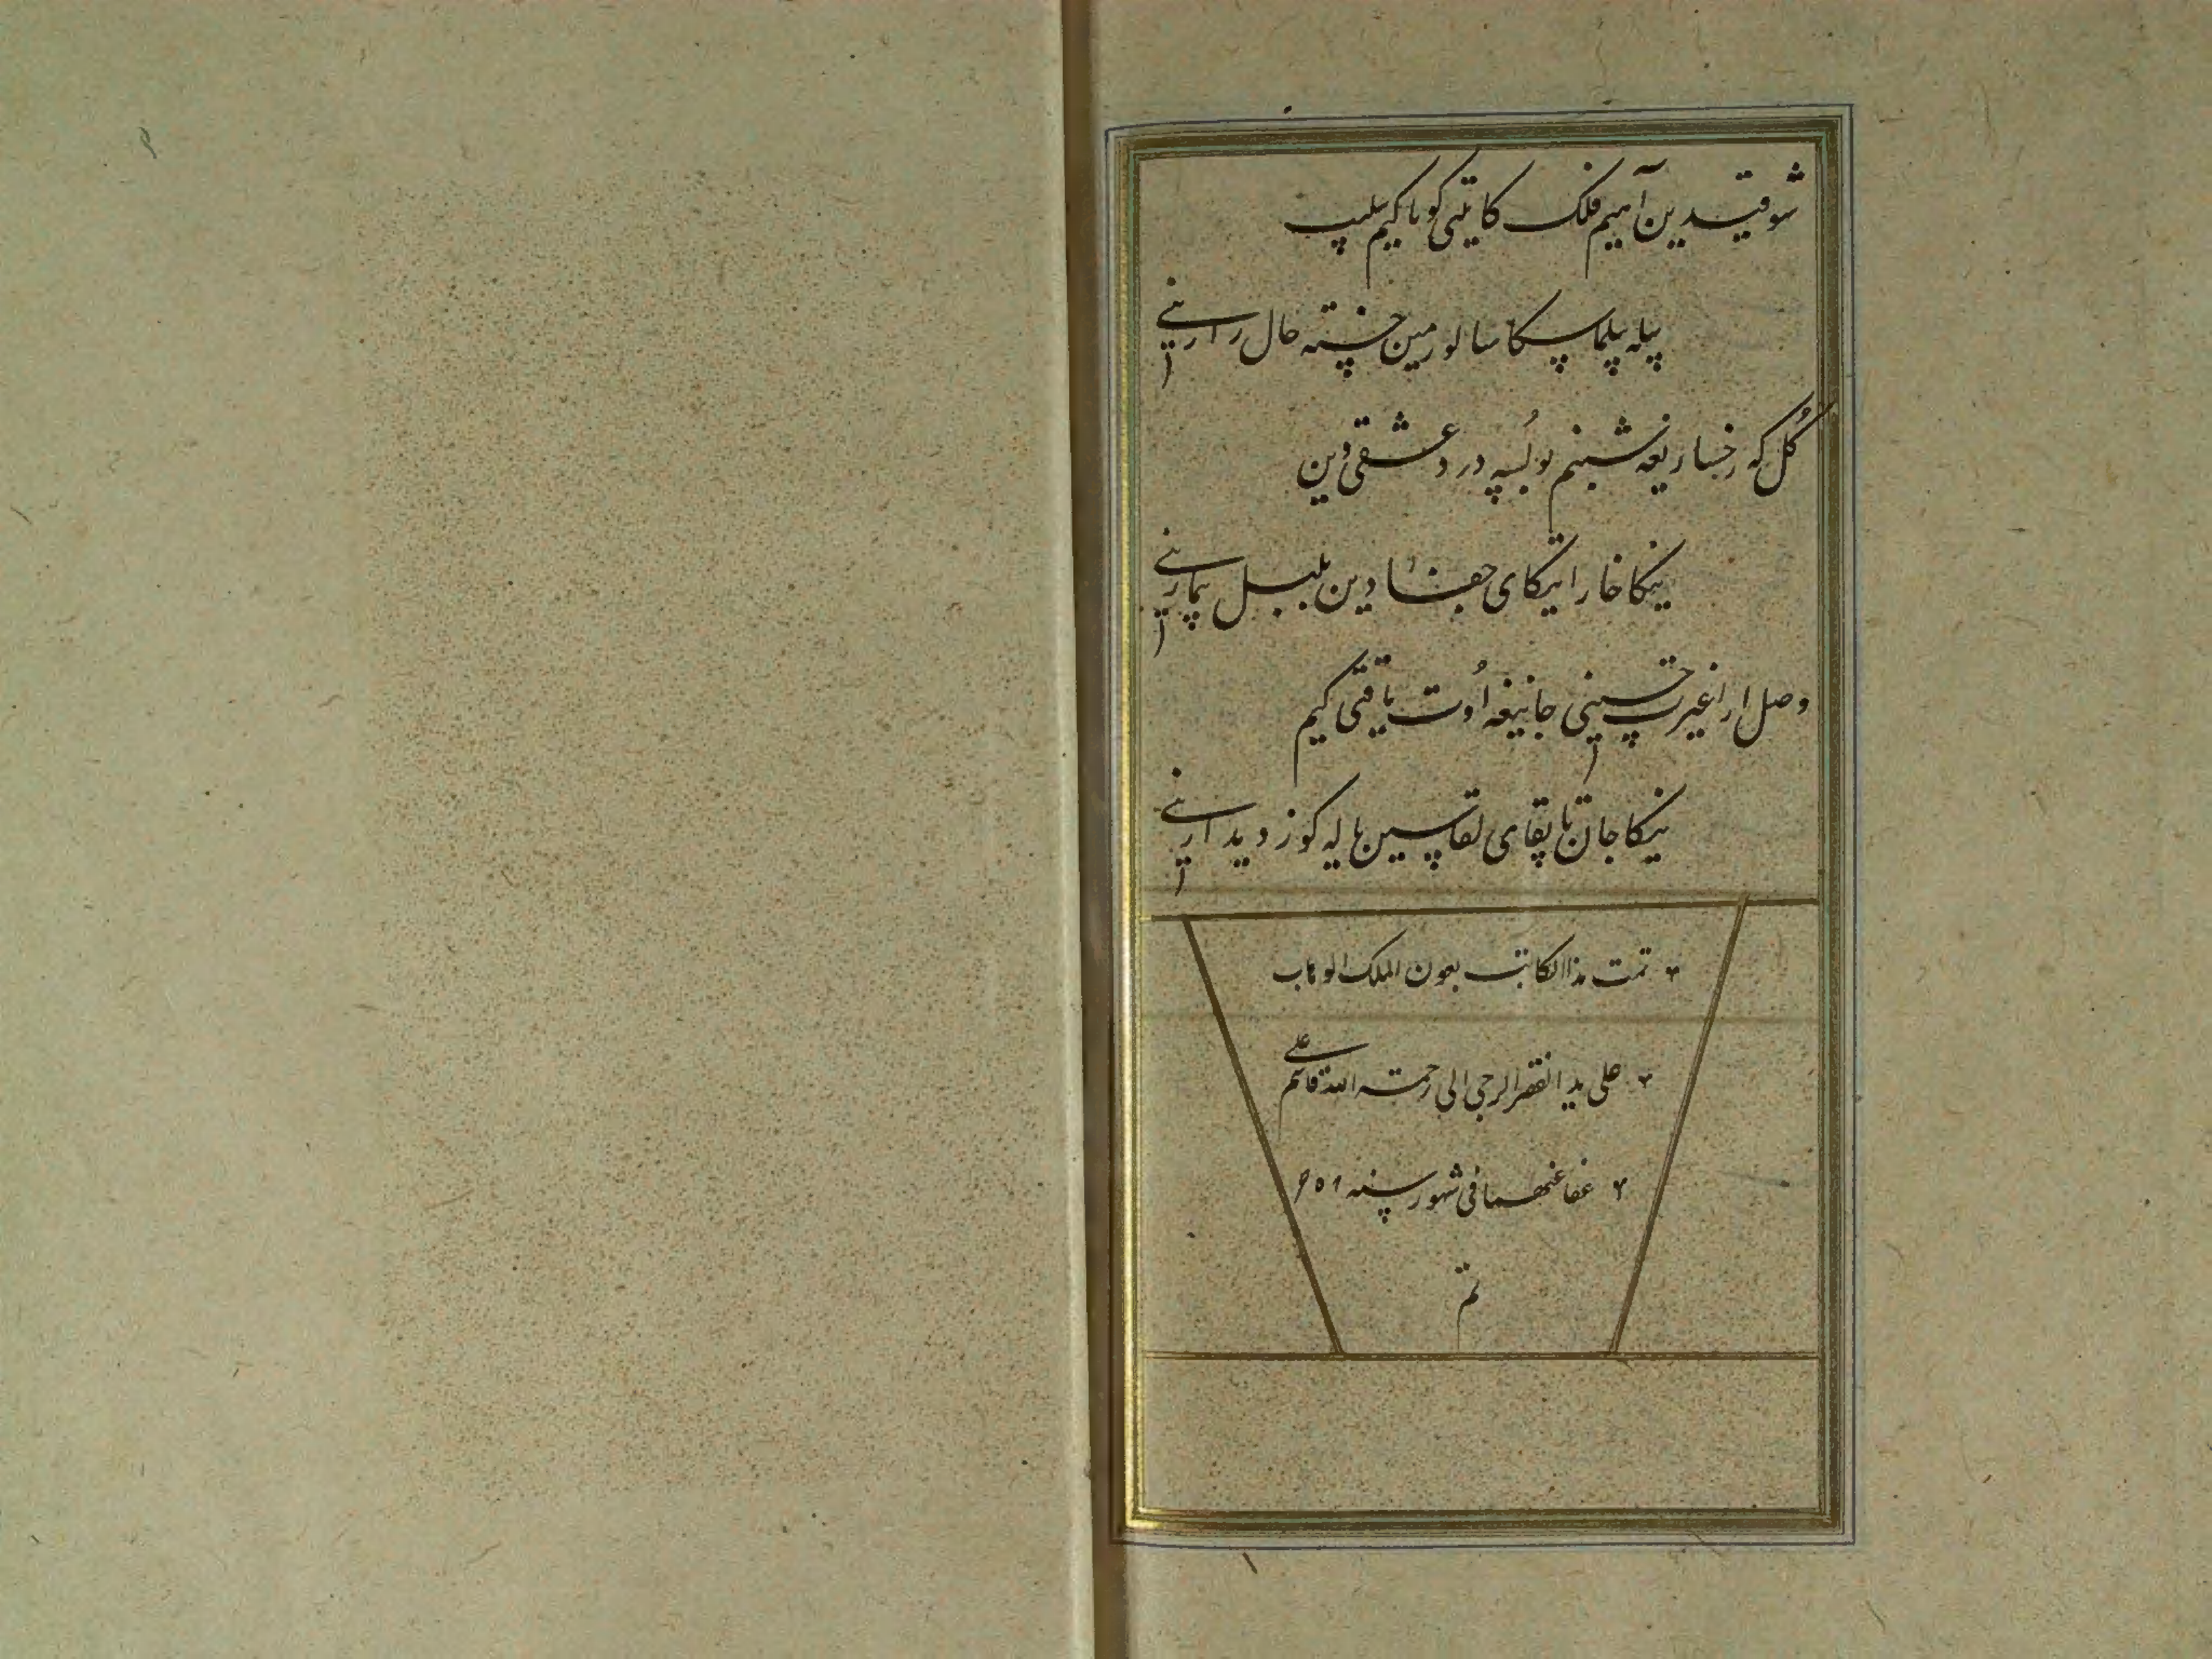 شوقیدین آهیم فلک کا یتی کویا کیم سلیپ
بیله بیلماسکا سالور مین خسته حال زارنی
کُل که رخساریغه شبنم بولُسه درد عشقی دین
نیکا خار ایتکای جفا دین بلبل بیمارنی
وصل ارا غیرت حسینی جانیغه اُوت یاقتی کیم
نیکا جان تاپقای لقاسین هر کوز دیدارنی
تمت هذا الکتاب بعون الملک الوهاب
علی ید الفقیر الرجی الی رحمة الله قاسم علی
عفا عنهما فی شهور سنه
تم